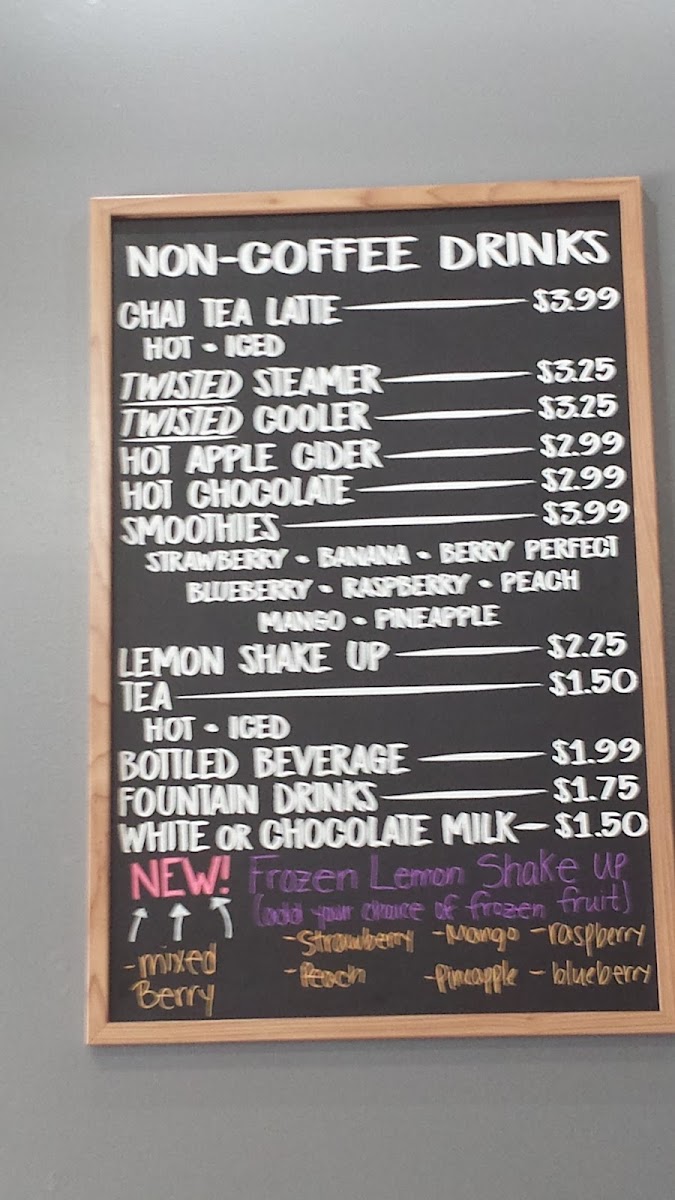 NON-COFFEE DRINKS
CHAI TEA LATTE $3.99
HOT - ICED
TWISTED STEAMER $3.25
TWISTED COOLER $3.25
HOT APPLE CIDER $2.99
HOT CHOCOLATE $2.99
SMOOTHIES $3.99
STRAWBERRY - BANANA - BERRY PERFECT
BLUEBERRY - RASPBERRY - PEACH
MANGO - PINEAPPLE
LEMON SHAKE UP $2.25
TEA $1.50
HOT - ICED
BOTTLED BEVERAGE $1.99
FOUNTAIN DRINKS $1.75
WHITE OR CHOCOLATE MILK $1.50
NEW! Frozen Lemon Shake UP
(add your choice of frozen fruit)
-Strawberry -Mango -raspberry
-mixed Berry -Peach -Pineapple -blueberry